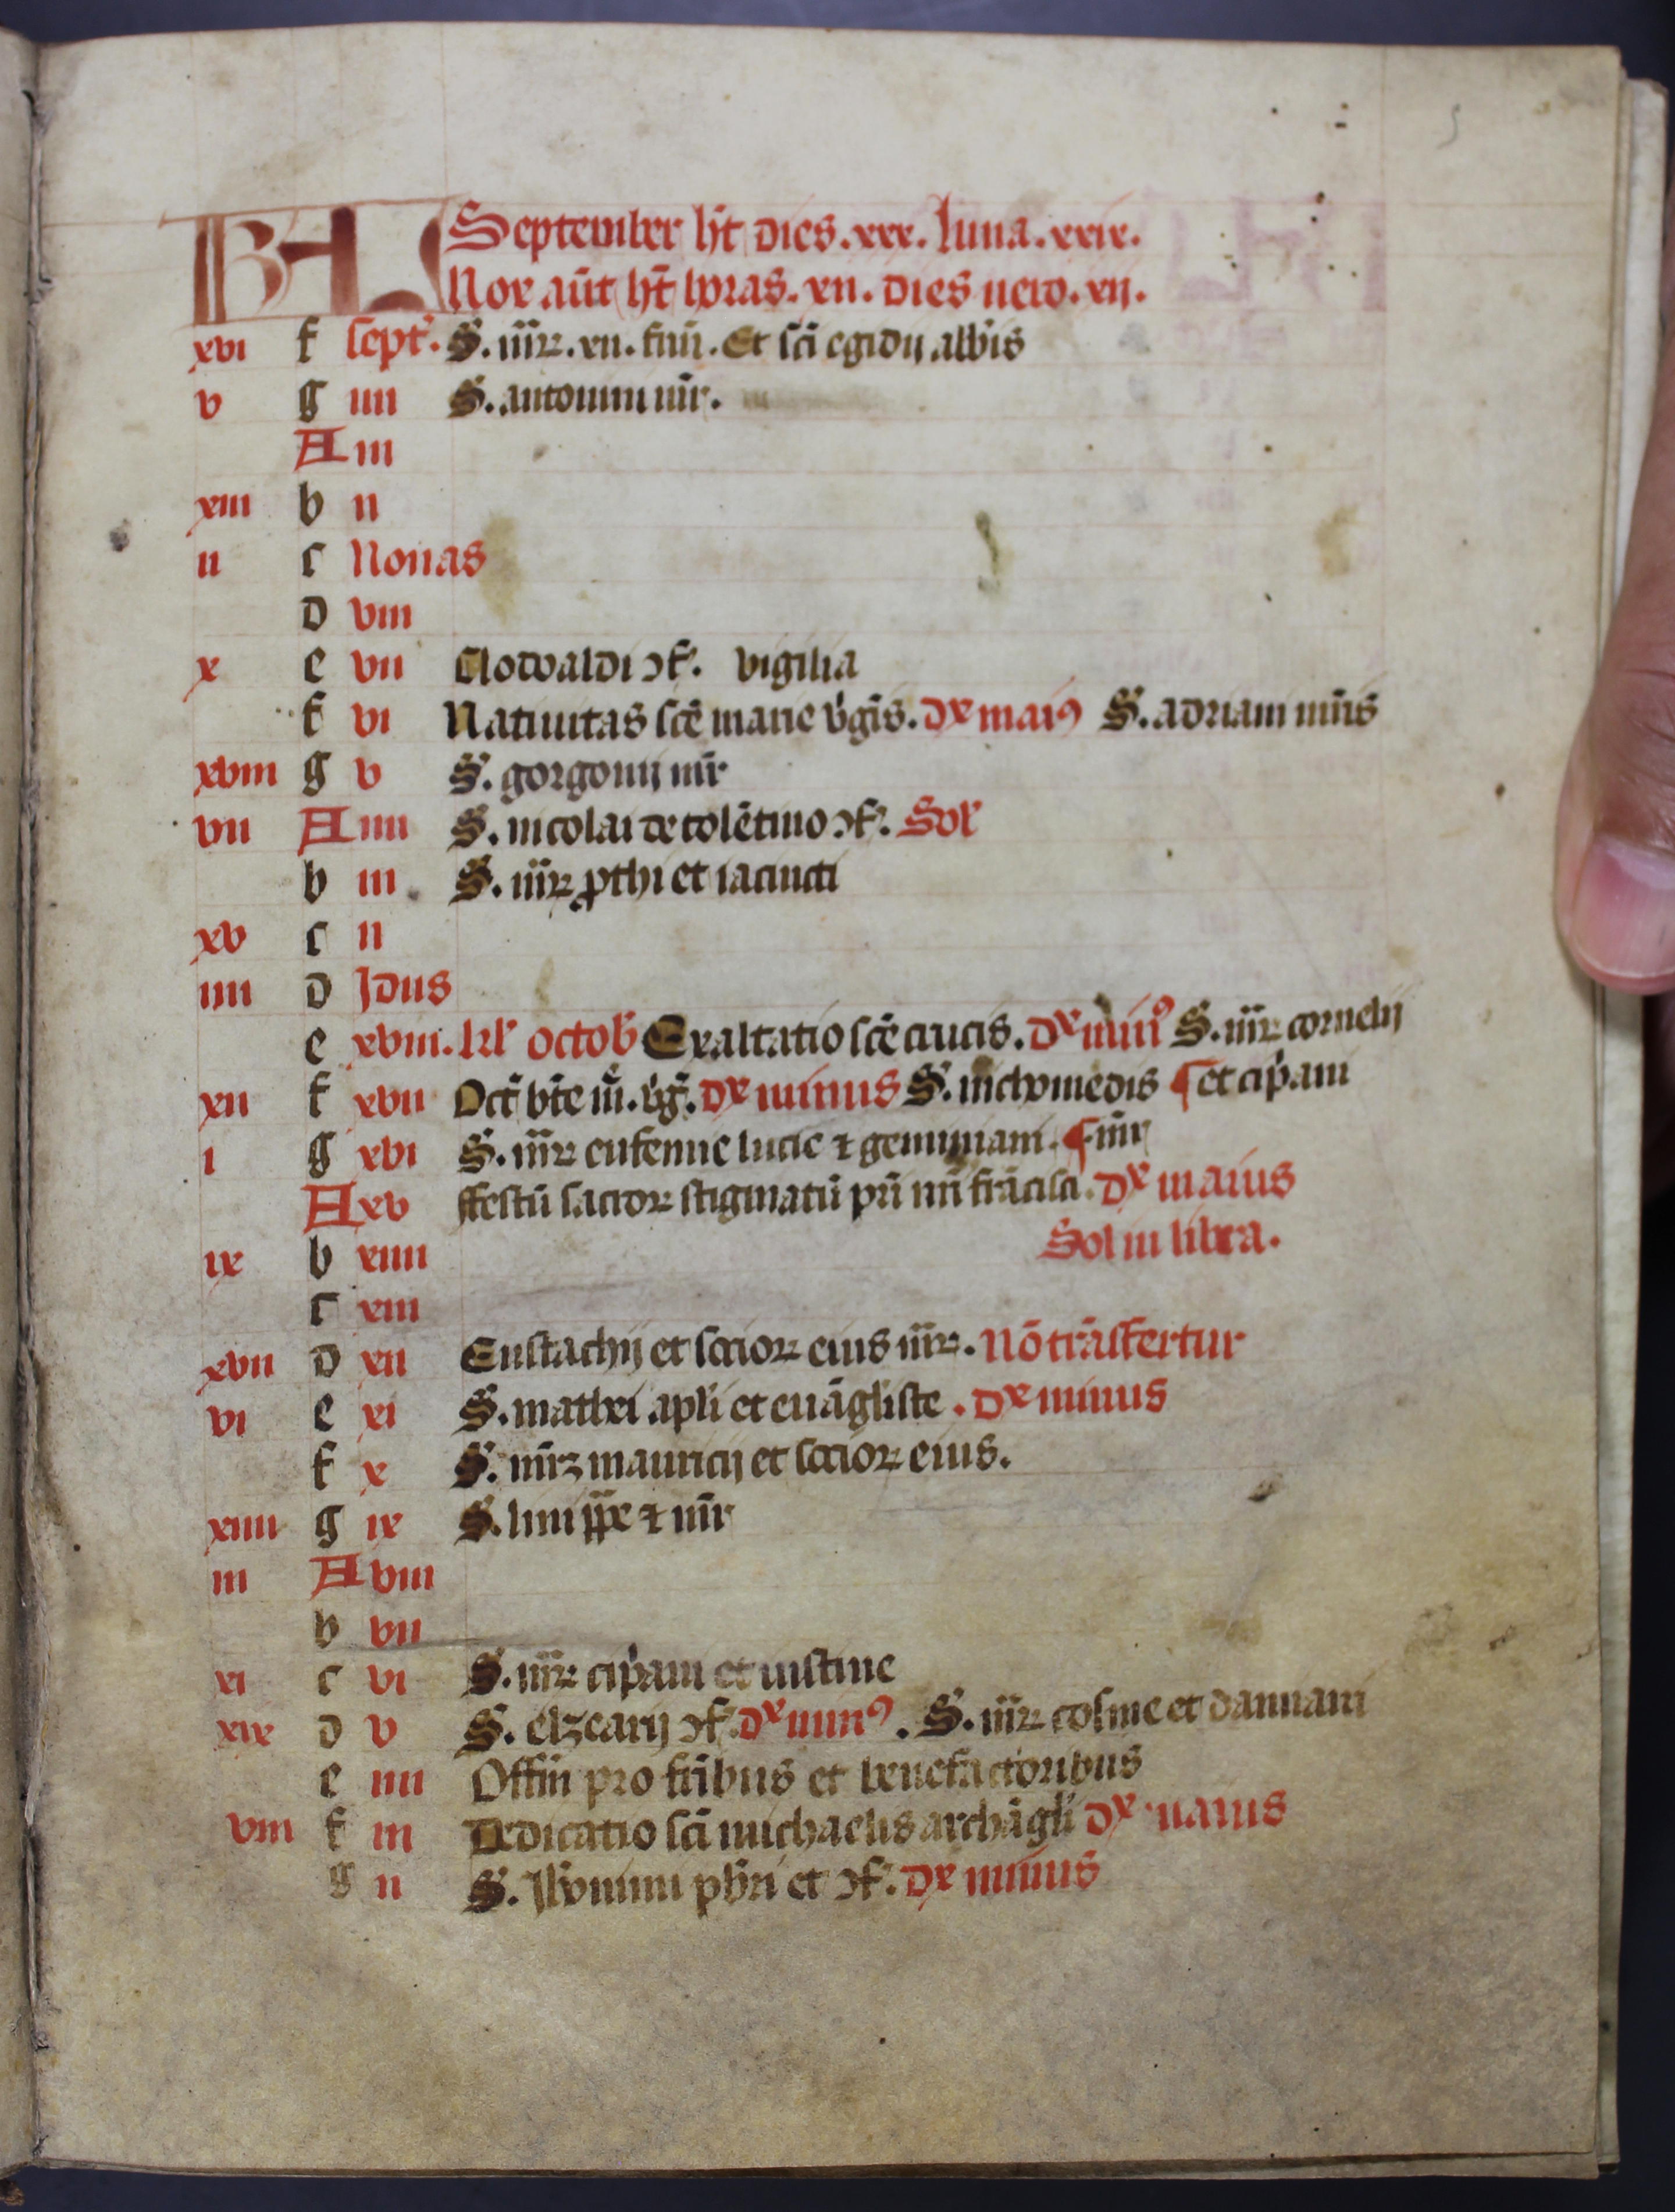 KL September ht̄ dies .xxx. luna .xxix.
Nox aūt ht̄ horas .xii. dies uero .xii.
xvi f sept᷑. S. mr̄ꝝ .xii. fr̄m̄. Et sc̄i egidij abb̄is
v g iiii S. antonini mr̄.
A iii
xiii b ii
ii c Nonas
d viii
x e vii Clodoaldi ɔf᷑. vigilia
f vi Natiuitas sc̄e marie v̓gīs. dx̄ maiꝰ S. adriani mr̄is
xviii g v S. gorgonij mr̄
vii A iiii S. nicolai de tolētino ɔf᷑. Sol᷑
b iii S. mr̄ꝝ ꝓthi et iacincti
xv c ii
iiii d Idus
e xviii. kl᷑ octob̓ Exaltatio sc̄e crucis. dx̄ minꝰ S. mr̄ꝝ cornelij
xii f xvii Oct̄ bt̄e m̄. v̓g̓. dx̄ minus S. nichomedis ¶ et cip̓ani
i g xvi S. mr̄ꝝ eufemie lucie ⁊ geminiani. ¶ mr̄
A xv ffestū sacroꝝ stigmatū pr̄i nr̄i frācisci. dx̄ maius
ix b xiiii Sol in libra.
c xiii
xvii d xii Eustachij et socioꝝ eius mr̄ꝝ. Nō trāsfertur
vi e xi S. mathei apl̄i et euāgliste . dx̄ minus
f x S. mr̄ꝝ mauricij et socioꝝ eius.
xiiii g ix S. lini pp̄e ⁊ mr̄
iii A viii
b vii
xi c vi S. mr̄ꝝ cip̓ani et iustine
xix d v S. elzearij ɔf᷑. dx̄ minꝰ. S. mr̄ꝝ cosme et damiani
e iiii Offm̄ pro fr̄ibus et benefactoribus
viii f iii Dedicatio sc̄i michaelis archāgl̄i dx̄ maius
g ii S. Jeronimi pb̓ri et ɔf᷑. dx̄ minus